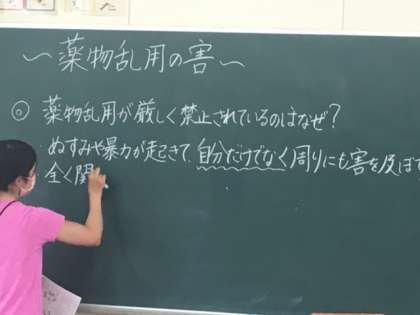 〜薬物乱用の害〜
◎ 薬物乱用が厳しく禁止されているのはなぜ?
ぬすみや暴力が起きて、自分だけでなく周りにも害を及ぼす
全く関